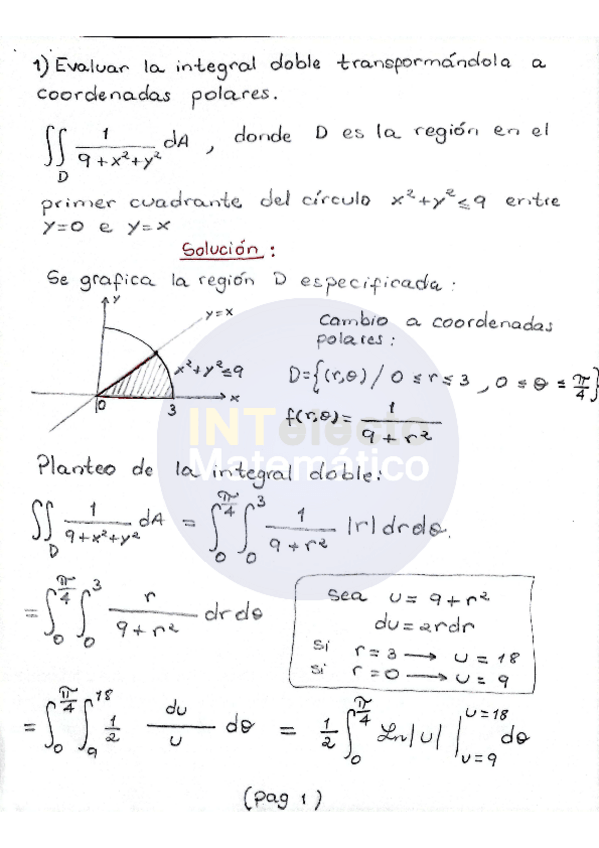 1) Evaluar la integral doble transpormándola a
coordenadas polares.
∬_D 1/(9+x²+y²) dA , donde D es la región en el
primer cuadrante del círculo x²+y²≤9 entre
y=0 e y=x
Solución:
Se grafica la región D especificada:
y
y=x
x²+y²≤9
x
0
3
Cambio a coordenadas
polares:
D={(r,θ) / 0≤r≤3 , 0≤θ≤π/4}
f(r,θ)= 1/(9+r²)
INTelecto
Matemático
Planteo de la integral doble:
∬_D 1/(9+x²+y²) dA = ∫_0^{π/4} ∫_0^3 1/(9+r²) |r| dr dθ.
= ∫_0^{π/4} ∫_0^3 r/(9+r²) dr dθ
Sea u=9+r²
du=2rdr
si r=3 → u=18
si r=0 → u=9
= ∫_0^{π/4} ∫_9^{18} 1/2 du/u dθ = 1/2 ∫_0^{π/4} Ln|u| |_{u=9}^{u=18} dθ
(pag 1)